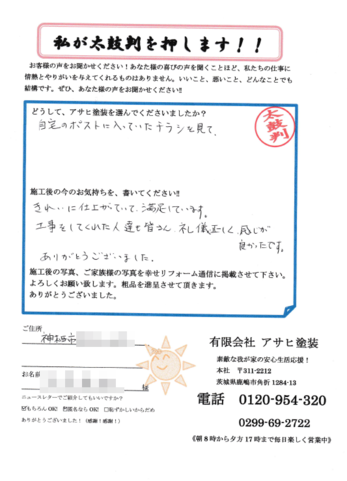 私が太鼓判を押します！！
お客様の声をお聞かせください！あなた様の喜びの声を聞くことほど、私たちの仕事に
情熱とやりがいを与えてくれるものはありません。いいこと、悪いこと、どんなことでも
結構です。ぜひ、あなた様の声をお聞かせください!!
どうして、アサヒ塗装を選んでくださいましたか？
太鼓判
自宅のポストに入っていたチラシを見て、
施工後の今のお気持ちを、書いてください!!
きれいに仕上がっていて、満足しています。
工事をしてくれた人達も皆さん、礼儀正しく、感じが
良かったです。
ありがとうございました。
施工後の写真、ご家族様の写真を幸せリフォーム通信に掲載させて下さい。
よろしくお願い致します。粗品を進呈させて頂きます。
ありがとうございました。
ご住所、
神栖市
お名前
ニュースレターでご紹介してもいいですか？
もちろんOK! □匿名ならOK! □恥ずかしいからだめ
ありがとうございました！（感謝！感謝！）
有限会社 アサヒ塗装
素敵な我が家の安心生活応援！
本社 〒311-2212
茨城県鹿嶋市角折 1284-13
電話 0120-954-320
0299-69-2722
《朝８時から夕方 17 時まで毎日楽しく営業中》